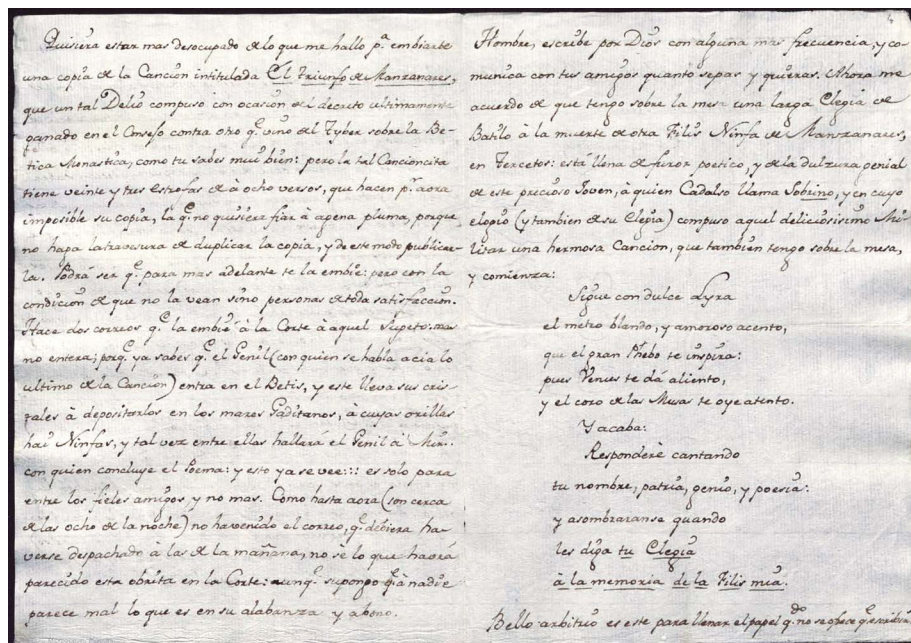 Quisiera estar mas desocupado de lo que me hallo pª embiarte
una copia de la Cancion intitulada El Triunfo de Manzanares,
que un tal Delio compuso con ocasion del decreto ultimamente
ganado en el Consejo contra otro qe vino del Tyber sobre la Be-
tica Monastica, como tu sabes mui bien: pero la tal Cancioncita
tiene veinte y tres estrofas de à ocho versos, que hacen pr aora
imposible su copia, la qe no quisiera fiar à agena pluma, porque
no haga la travesura de duplicar la copia, y de este modo publicar-
la. Podrá ser qe para mas adelante te la embie: pero con la
condicion de que no la vean sino personas de toda satisfaccion.
Hace dos correos qe la embiè à la Corte à aquel Sugeto: mas
no entera; porqe ya sabes qe el Genil (con quien se habla acia lo
ultimo de la Cancion) entra en el Betis, y este lleva sus cris-
tales à depositarlos en los mares Gaditanos, à cuyas orillas
hai Ninfas, y tal vez entre ellas hallará el Genil à Mir.
con quien concluye el Poema: y esto ya se vee::: es solo para
entre los fieles amigos y no mas. Como hasta aora (son cerca
de las ocho de la noche) no ha venido el correo, qe debiera ha-
verse despachado à las de la mañana, no sè lo que havrá
parecido esta obrita en la Corte: aunqe supongo qe à nadie
parece mal lo que es en su alabanza y abono.
Hombre, escribe por Dios con alguna mas frecuencia, y co-
munica con tus amigos quanto sepas y quieras. Ahora me
acuerdo de que tengo sobre la mesa una larga Elegia de
Batilo à la muerte de otra Filis Ninfa de Manzanares,
en Tercetos: està llena de furor poetico, y de la dulzura genial
de este precioso Joven, à quien Cadalso llama Sobrino, y en cuyo
elogio (y tambien de su Elegia) compuso aquel deliciosisimo Mi-
litar una hermosa Cancion, que tambien tengo sobre la mesa,
y comienza:
Sigue con dulce Lyra
el metro blando, y amoroso acento,
que el gran Phebo te inspira:
pues Venus te dá aliento,
y el coro de las Musas te oye atento.
Y acaba:
Responderè cantando
tu nombre, patria, genio, y poesia:
y asombraranse quando
les diga tu Elegia
à la memoria de la Filis mia.
Bello arbitrio es este para llenar el papel qdo no se ofrece qe escribir